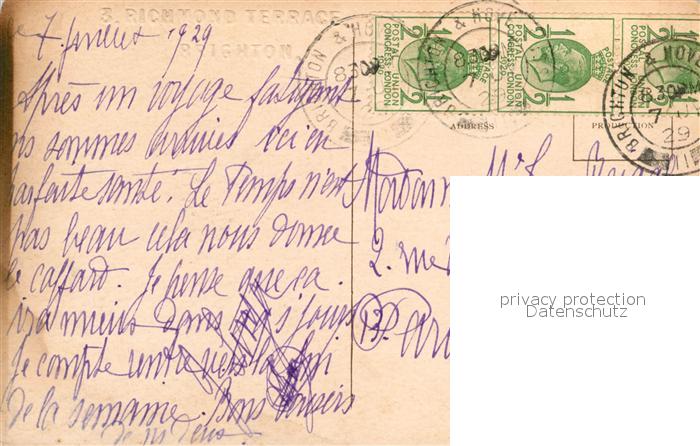 3. RICHTOND TERRACE
BRIGHTON
le 7 1929
Après un voyage fatigant
ns sommes arrivées ici en
parfaite santé. Le Temps n'est
pas beau cela nous donne
le caffard. Je pense que ça
ira mieux dans jours
Je compte rentrer vers la fin
de la semaine. Bons baisers
de ns deux.
POSTAL UNION CONGRESS LONDON 1929
1/2 1/2
POSTAL UNION CONGRESS LONDON 1929
1/2 1/2
1/2
BRIGHTON & HOVE
8 30PM
29
ADDRESS
PRODUCTION
Madame
2. rue
Paris
privacy protection
Datenschutz